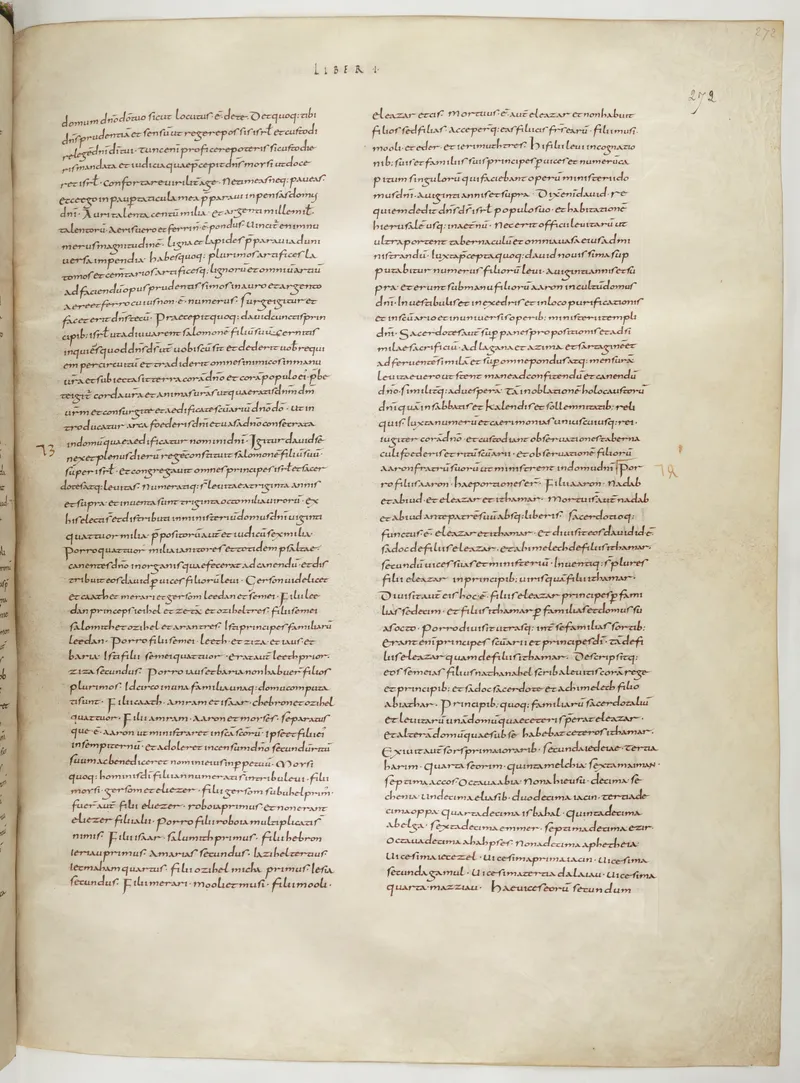 LIBER I
272
272
domum dño dõ tuo sicut locutus ẽ de te · Det quoq: tibi
dñs prudentiã et sensũ ut regere possis isrł et custodi
re legẽ dñi dĩ tui · tunc enĩ proficere poteris si custodie
ris mandata et iudicia quae p̃cepit dñs moysi ut doce
ret isrł · confortare uiriliŧ age · Ne timeas neq: paueas
ecce ego in paupertatula mea p̃paraui inpensas dom'
dñi · Auri talenta centũ milia · et argenti mille mił
talentorũ · Aeris uero et ferri ñ ẽ pondus · Uincit enĩ nu
merus magnitudinẽ · Ligna et lapides p̃paraui ad uni
uersa impendia · habes quoq: plurimos artifices la
tomos et cẽmtarios artificesq: lignorũ et omniũ artiũ
ad faciendũ opus prudentissimos in auro et argento
aere et ferro cuius non ẽ numerus · surge igitur et
fac et erit dñs tecũ · Praecepit quoq: dauid cunctis prin
cipib: isrł ut adiuuarent salomonẽ filiũ suũ · cernitis
inquiẽs quod dñs dr̃ ur̃ uobiscũ sit et dederit uob requi
em per circuitũ et tradiderit omnes inimicos in manu
ura et subiecta sit terra corã dño et corã populo ei · p̃be
te igit̃ corda ura et animas uras ut quaeratis dñm dm̃
urm̃ et consurgite et aedificate scũariũ dño dõ · ut in
troducatur arca foederis dñi et uasa dño consecrata
73
in domũ quae aedificatur nomini dñi · Igitur dauid se
nex et plenus dierũ regẽ constituit salomonẽ filiũ suũ
sup̃ isrł · et congregauit omnes principes isrł et sacer
dotes atq: leuitas · Numeratiq: s̃ leuitae a triginta annis
et supra · et inuenta sunt triginta octo milia uirorũ · ex
his electi s̃ et distributi in ministeriũ domus dñi uiginti
quattuor milia · p̃positorũ aut̃ et iudicũ sex milia
Porro quattuor milia ianitores et totidem psaltae
canentes dño in organis quae fecerat ad canendũ · et dis
tribuit eos dauid p uices filiorũ leui · Gerson uidelicet
et caath et merari et gerson leedan et semei · Filii lee
dan princeps ieihel et zethã et ozihel tres · filii semei
salomith et ozihel et aran tres · Isti principes familiarũ
leedan · Porro filii semei · leeth · et ziza · et iaus et
baria · Isti filii semei quattuor · erat aut̃ leeth prior ·
ziza secundus · Porro iaus et baria non habuer̃ filios
plurimos · Idcirco in una familia unaq: domo conputa
ti sunt · Filii caath · amram et isaar · chebron et ozihel
quattuor · Filii amram · Aaron et moyses · separatus
que ẽ · aaron ut ministraret in scã scorũ · ipse et filii ei
in sempiternũ · et adoleret incensũ dño secundũ ritũ
suũ ac benediceret nomini eius in p̃petuũ · Moysi
quoq: hominis dĩ filii annumerati s̃ in tribu leui · filii
moysi · gersom et eliezer · filii gersom subuhel prim' ·
fuer̃ aut̃ · filii eliezer · roboia primus et non erant
eliezer filii alii · Porro filii roboia multiplicati s̃
nimis · Filii isaar · salumith primus · filii hebron
ieriau primus · Amarias secundus · Iazihel tertius
iecmaham quartus · filii ozihel micha primus · Iesia
secundus · Filii merari · mooli et musi · filii mooli ·
eleazar et cis · Mortuus ẽ aut̃ eleazar et non habuit
filios sed filias · Accepeř q: eas filii cis frĩs earũ · filii musi
mooli · et eder · et ierimuth tres · Hi filii leui in cognatio
nib: suis et familiis suis principes p uices et numerũ ca
pitum singulorũ qui faciebant opera ministerii do
mus dñi · a uiginti annis et supra · Dixit enĩ dauid · re
quiem dedit dñs dr̃ isrł populo suo et habitationẽ
hierusalẽ usq: in aet̃nũ · Nec erit officii leuitarũ ut
ultra portent tabernaculũ et omnia uasa eius ad mi
nistrandũ · Iuxta p̃cepta quoq: dauid nouissima sup
putabitur numerus filiorũ leui · a uiginti annis et su
pra · et erunt sub manu filiorũ aaron in cultũ domus
dñi · In uestibulis et in exedris et in loco purificationis
et in scũario et in uniuersis operib: ministerii templi
dñi · Sacerdotes aut̃ sup panes propositionis et ad si
milae sacrificiũ · ad lagana et azima et sartaginẽ et
ad feruentẽ similã et sup omne pondus atq: mensurã
leuitae uero ut stent mane ad confitendũ et canendũ
dño · similiterq: ad uesperã · tã in oblatione holocaustorũ
dñi quã in sabbatis et kalendis et sollemnitatib: reli
quis · Iuxta numerũ et caerimonias unius cuiusq: rei ·
iugiter corã dño · et custodiant obseruationes taberna
culi foederis et ritũ scũarii · et obseruationẽ filiorũ
aaron fratrũ suorũ ut ministrent in domu dñi · Por
ro filiis aaron · hae portiones er̃ · Filii aaron · Nadab
et abiud · et eleazar et ithamar · Mortui s̃ aut̃ nadab
et abiud ante patrẽ suũ absq: liberis · sacerdotioq:
functus ẽ · eleazar et ithamar · et diuisit eos dauid id ẽ
sadoc de filiis eleazar · et ahimelech de filiis ithamar ·
secundũ uices suas et ministeriũ · Inuentiq: s̃ plures
filii eleazar · in principib: uiris quã filii ithamar ·
Diuisit aut̃ eis hoc ẽ · filiis eleazar principes p fami
lias sedecim · et filiis ithamar p familias et domus su
as octo · Porro diuisit utrasq: int̃ se familias sortib: ·
Erant enĩ principes scũarii et principes dĩ · tã de fi
liis eleazar quam de filiis ithamar · Descripsitq:
eos semeias filius nathanahel scriba leuites corã rege
et principib: et sadoc sacerdote et achimelech filio
abiathar · Principib: quoq: familiarũ sacerdotaliũ
et leuitarũ unã domũ quae ceteris p̃erat eleazar ·
et alterã domũ quae sub se habebat ceteros ithamar ·
Exiuit aut̃ sors prima ioiarib · secunda iedeiae · tertia
harim · quarta seorim · quinta melchia · sexta maiman ·
septima accos · Octaua abia · Nona hiesu · decima se
chenia · Undecima eliasib · duodecima iacin · tertiade
cima oppa · quartadecima isbahal · quintadecima
abelga · sextadecima emmer · septimadecima ezir ·
Octauadecima ahabhses · Nonadecima aphethetia ·
Uicesima iecezel · uicesima prima iacin · uicesima
secunda gamul · Uicesima tertia dalaiau · uicesima
quarta mazziau · Hae uices eorũ secundum